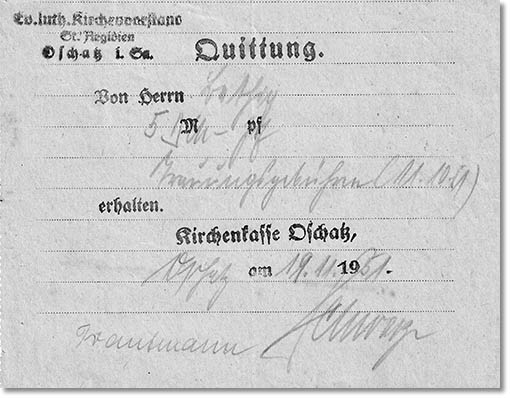 Ev.luth.Kirchenvorstand
St. Aegidien
Oschatz i. Sa.
Quittung.
Von Herrn
5 M - pf
Trauungsgebühren (11.10.51)
erhalten.
Kirchenkasse Oschatz,
Oschatz am 19.11. 1951.
Trautmann